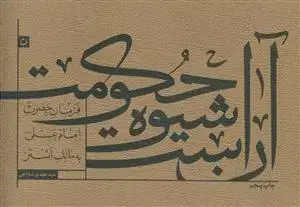 آراسبت
شیوه
حکومت
فرمان حضرت
امام علی
به مالک اشتر
سید مهدی شجاعی
چاپ پنجم